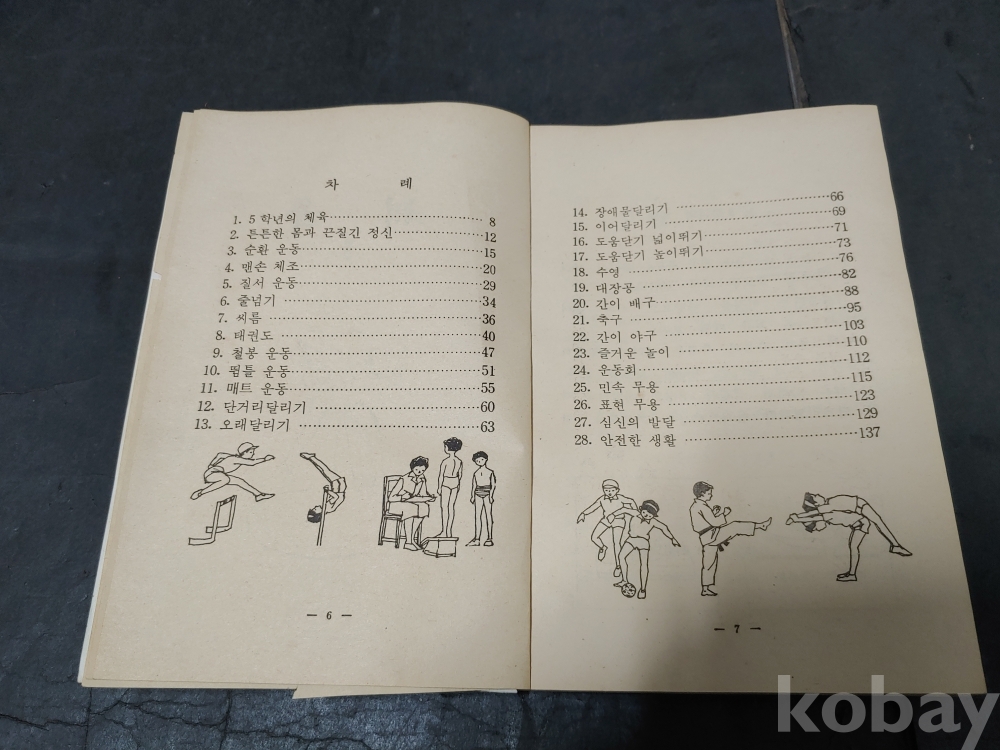 차 례
1. 5학년의 체육 8
2. 튼튼한 몸과 끈질긴 정신 12
3. 순환 운동 15
4. 맨손 체조 20
5. 질서 운동 29
6. 줄넘기 34
7. 씨름 36
8. 태권도 40
9. 철봉 운동 47
10. 뜀틀 운동 51
11. 매트 운동 55
12. 단거리달리기 60
13. 오래달리기 63
— 6 —
14. 장애물달리기 66
15. 이어달리기 69
16. 도움닫기 넓이뛰기 71
17. 도움닫기 높이뛰기 73
18. 수영 76
19. 대장공 82
20. 간이 배구 88
21. 축구 95
22. 간이 야구 103
23. 즐거운 놀이 110
24. 운동회 112
25. 민속 무용 115
26. 표현 무용 123
27. 심신의 발달 129
28. 안전한 생활 137
— 7 —
kobay